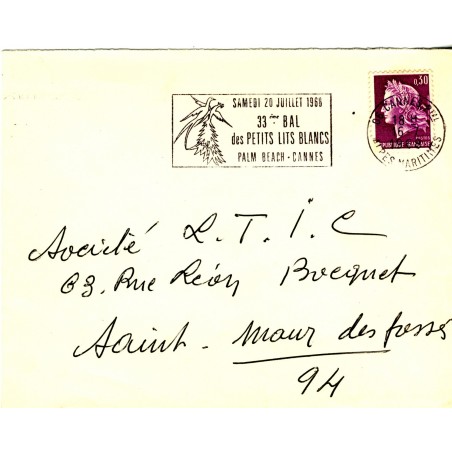 SAMEDI 20 JUILLET 1968
33ème BAL
des PETITS LITS BLANCS
PALM BEACH - CANNES
0,30
CANNES
18 H
ALPES MARITIMES
REPUBLIQUE FRANÇAISE
Société L. T. I. C
63. Rue Léon Bocquet
Saint-Maur des fossés
94